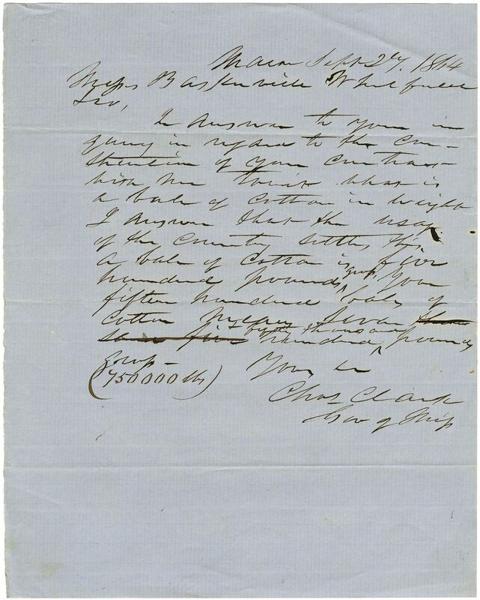 Macon Sept 27. 1864
Messrs Baskerville & Whitfield
Sir,
In Answer to your in
quiry in regard to the Con-
struction of your Contract
with me to wit what is
a bale of Cotton in weight
I Answer that the usage
of the Country settles this.
a bale of Cotton is five
hundred pounds, your
fifteen hundred bales of
Cotton means seven
hundred fifty thousand pounds
(750000 lbs)
Your &c
Chas Clark
Gov of Miss